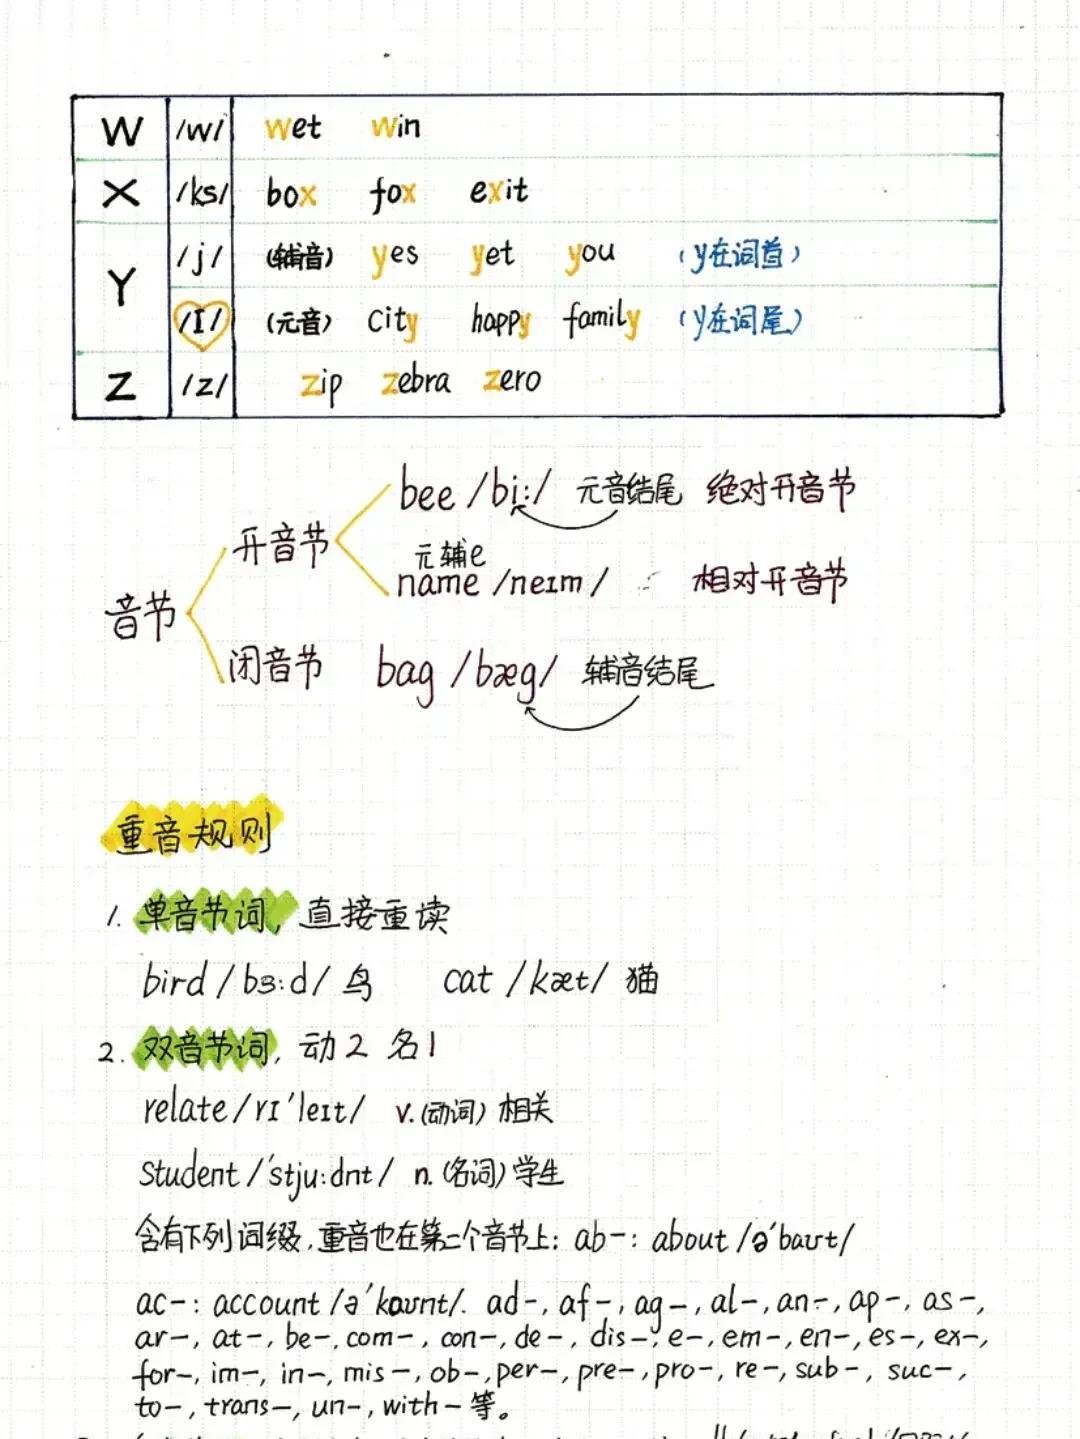 W /w/ wet win
X /ks/ box fox exit
Y /j/ (辅音) yes yet you (y在词首)
/I/ (元音) city happy family (y在词尾)
Z /z/ zip zebra zero
bee /bi:/ 元音结尾 绝对开音节
开音节
元辅e
name /neɪm/ 相对开音节
音节
闭音节 bag /bæg/ 辅音结尾
重音规则
1. 单音节词, 直接重读
bird /bɜ:d/ 鸟 cat /kæt/ 猫
2. 双音节词, 动2 名1
relate /rɪ'leɪt/ v.(动词) 相关
student /'stju:dnt/ n.(名词) 学生
含有下列词缀,重音也在第二个音节上: ab-: about /ə'baʊt/
ac-: account /ə'kaʊnt/. ad-, af-, ag-, al-, an-, ap-, as-,
ar-, at-, be-, com-, con-, de-, dis-, e-, em-, en-, es-, ex-,
for-, im-, in-, mis-, ob-, per-, pre-, pro-, re-, sub-, suc-,
to-, trans-, un-, with-等。